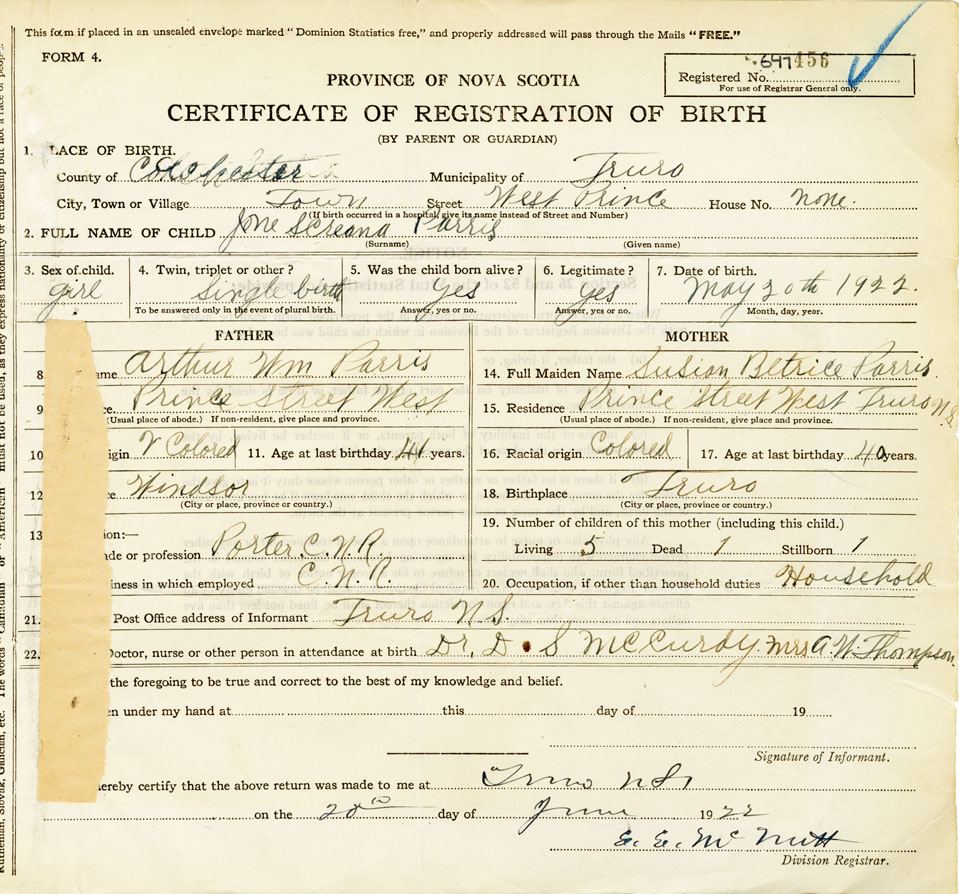 This form if placed in an unsealed envelope marked "Dominion Statistics free," and properly addressed will pass through the Mails "FREE."
FORM 4.
647456
Registered No.
For use of Registrar General only.
PROVINCE OF NOVA SCOTIA
CERTIFICATE OF REGISTRATION OF BIRTH
(BY PARENT OR GUARDIAN)
1. LACE OF BIRTH.
County of Colchester Municipality of Truro
City, Town or Village Town Street West Prince House No. none.
(If birth occurred in a hospital, give its name instead of Street and Number)
2. FULL NAME OF CHILD Parris
(Surname) (Given name)
3. Sex of child. 4. Twin, triplet or other? 5. Was the child born alive? 6. Legitimate? 7. Date of birth.
girl Single birth yes yes May 20th 1922.
To be answered only in the event of plural birth. Answer, yes or no. Answer, yes or no. Month, day, year.
FATHER MOTHER
8 ame Arthur Wm Parris 14. Full Maiden Name Susian Betrice Parris.
9 e. Prince Street West 15. Residence Prince Street West Truro N.S.
(Usual place of abode.) If non-resident, give place and province. (Usual place of abode.) If non-resident, give place and province.
10 igin Colored 11. Age at last birthday 41 years. 16. Racial origin Colored 17. Age at last birthday 40 years.
12 e Windsor 18. Birthplace Truro
(City or place, province or country.) (City or place, province or country.)
13 ion:— 19. Number of children of this mother (including this child.)
ade or profession Porter. C.N.R. Living 5 Dead 1 Stillborn 1
iness in which employed C.N.R. 20. Occupation, if other than household duties Household
21. Post Office address of Informant Truro N.S.
22. Doctor, nurse or other person in attendance at birth Dr. D. S McCurdy. Mrs A. W. Thompson.
the foregoing to be true and correct to the best of my knowledge and belief.
en under my hand at this day of 19
Signature of Informant.
ereby certify that the above return was made to me at Truro N.S.
on the 20th day of June 1922
E. E. McNutt
Division Registrar.